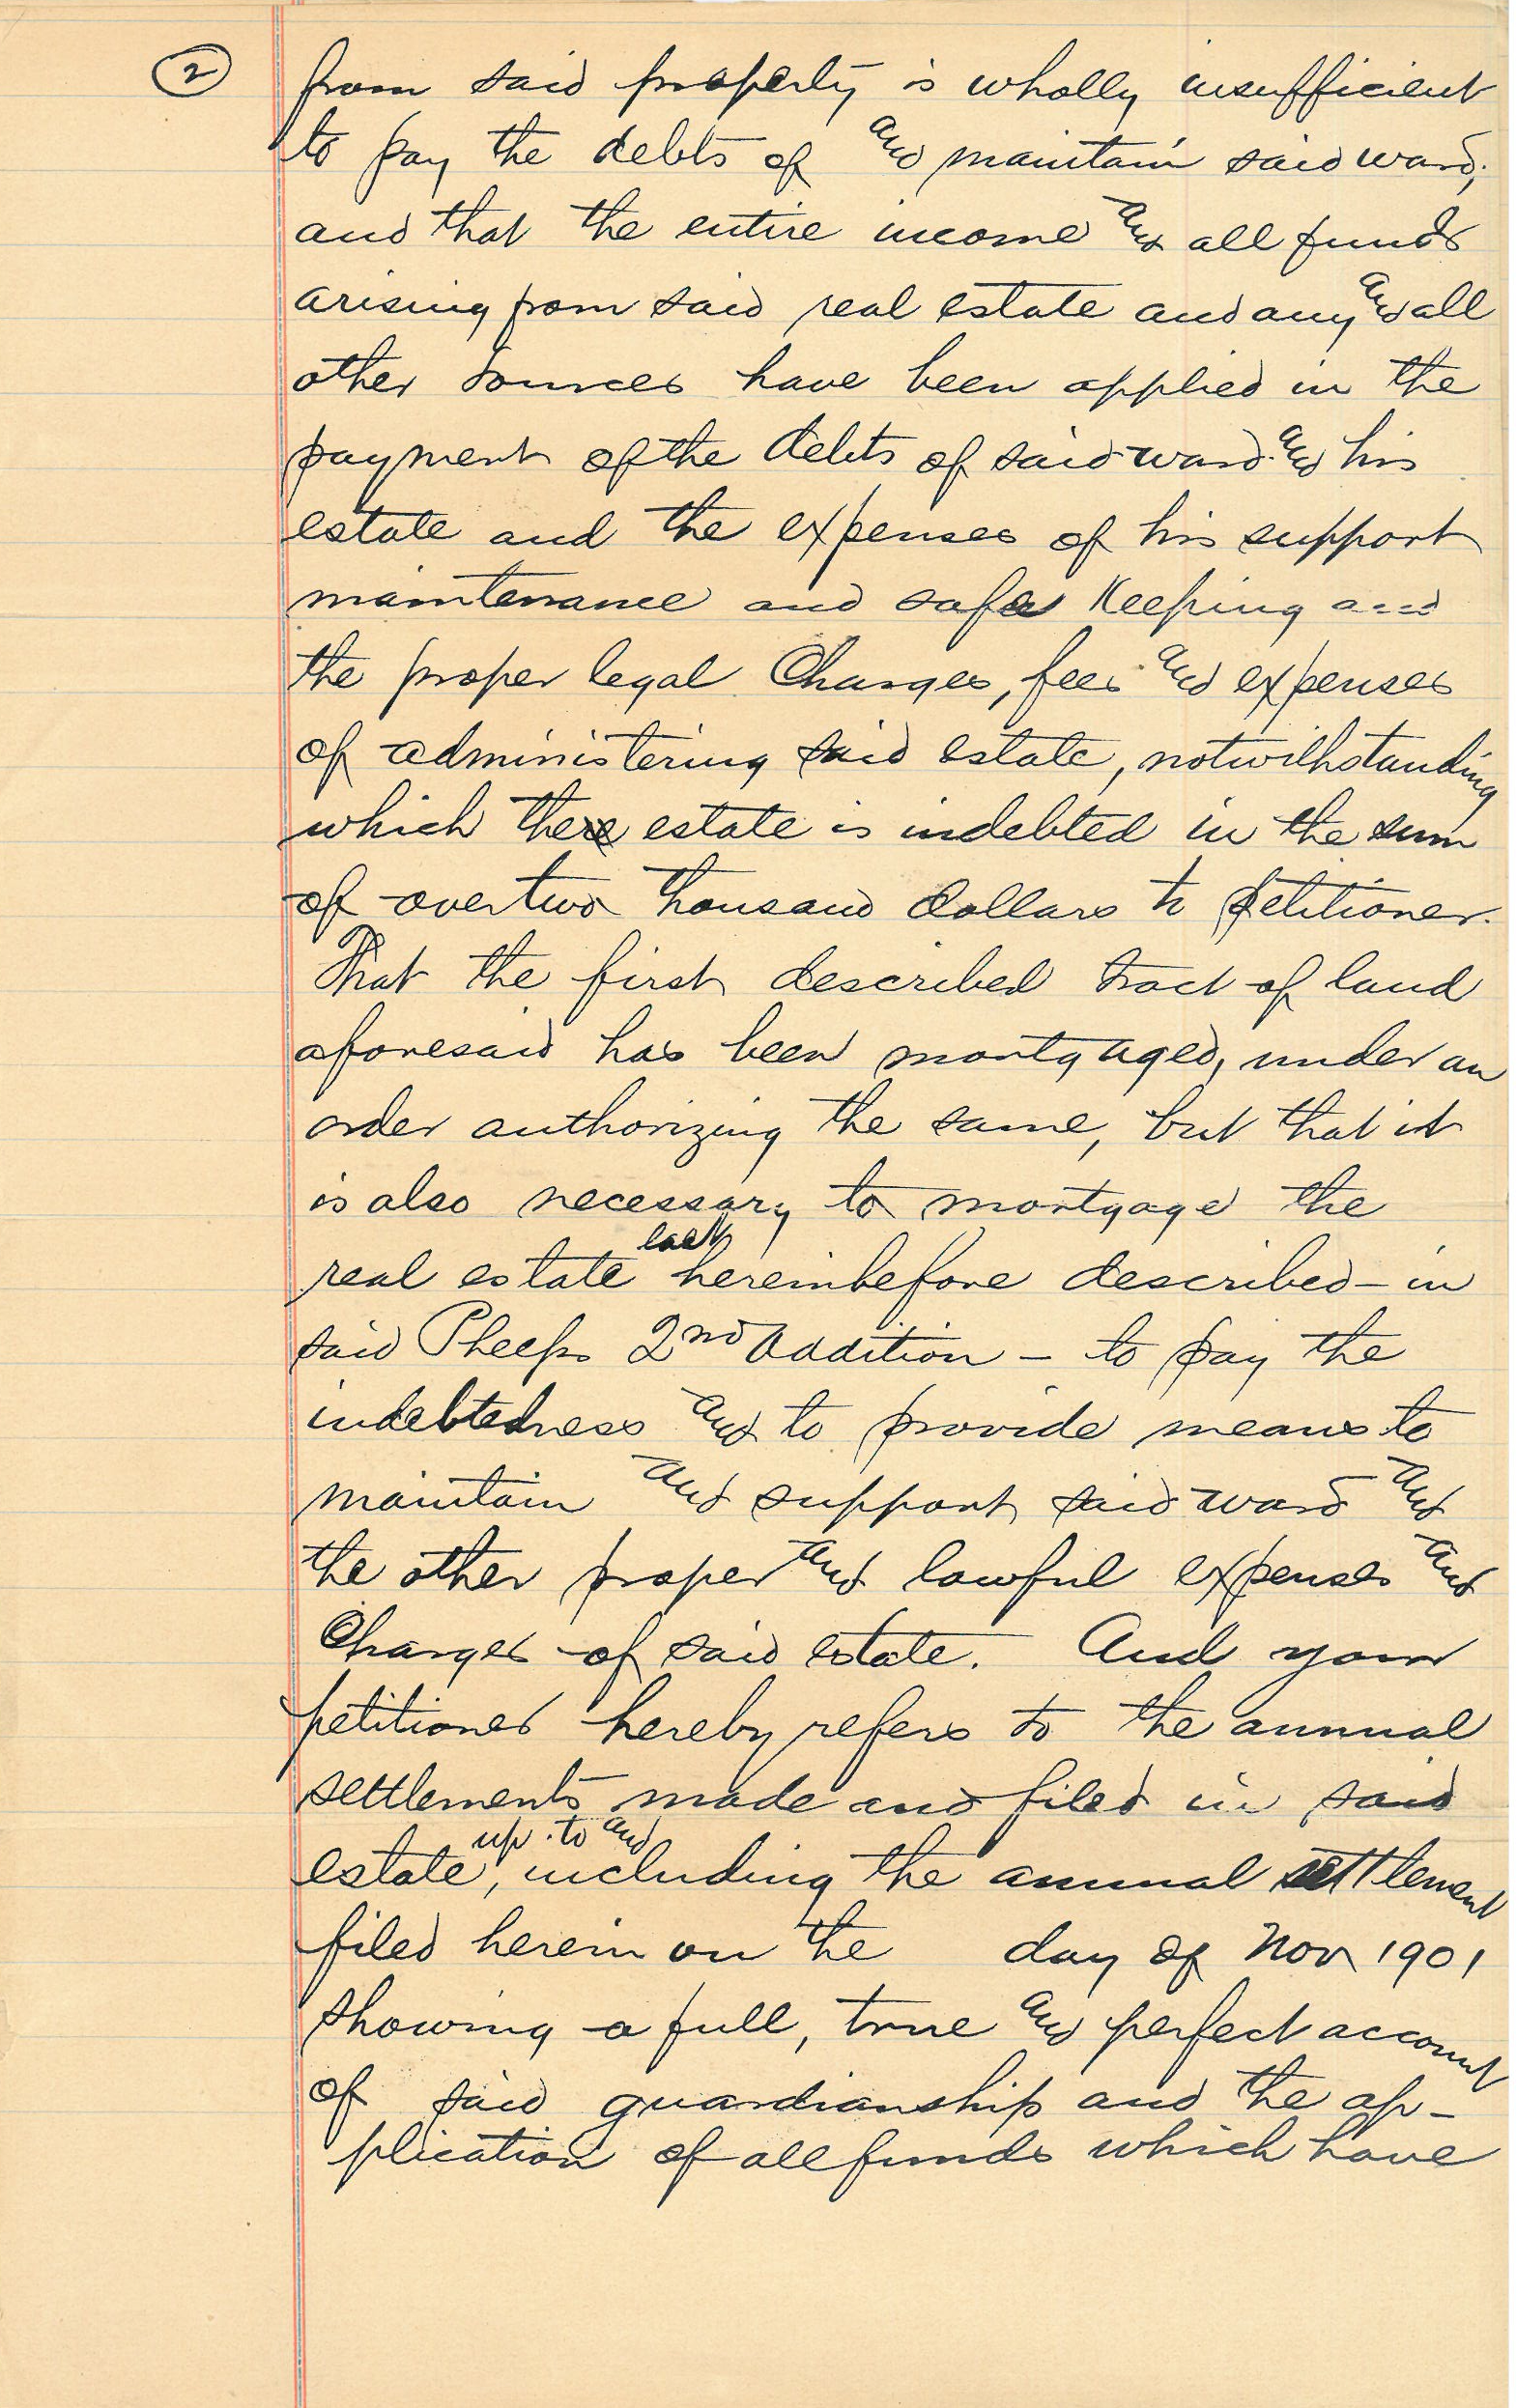 2
from said property is wholly insufficient
to pay the debts of and maintain said ward,
and that the entire income and all funds
arising from said real estate and any and all
other sources have been applied in the
payment of the debts of said ward and his
estate and the expenses of his support
maintenance and safe keeping and
the proper legal Charges, fees and expenses
of administering said estate, notwithstanding
which there estate is indebted in the sum
of over two thousand dollars to petitioner.
That the first described tract of land
aforesaid has been mortgaged, under an
order authorizing the same, but that it
is also necessary to mortgage the
last
real estate hereinbefore described - in
said Phelps 2nd Addition - to pay the
indebtedness and to provide means to
maintain and support said ward and
the other proper and lawful expenses and
Charges of said estate. And your
petitioner hereby refers to the annual
settlements made and filed in said
up to and
estate, including the annual settlement
filed herein on the day of Nov 1901
showing a full, true and perfect account
of said guardianship and the ap-
plication of all funds which have